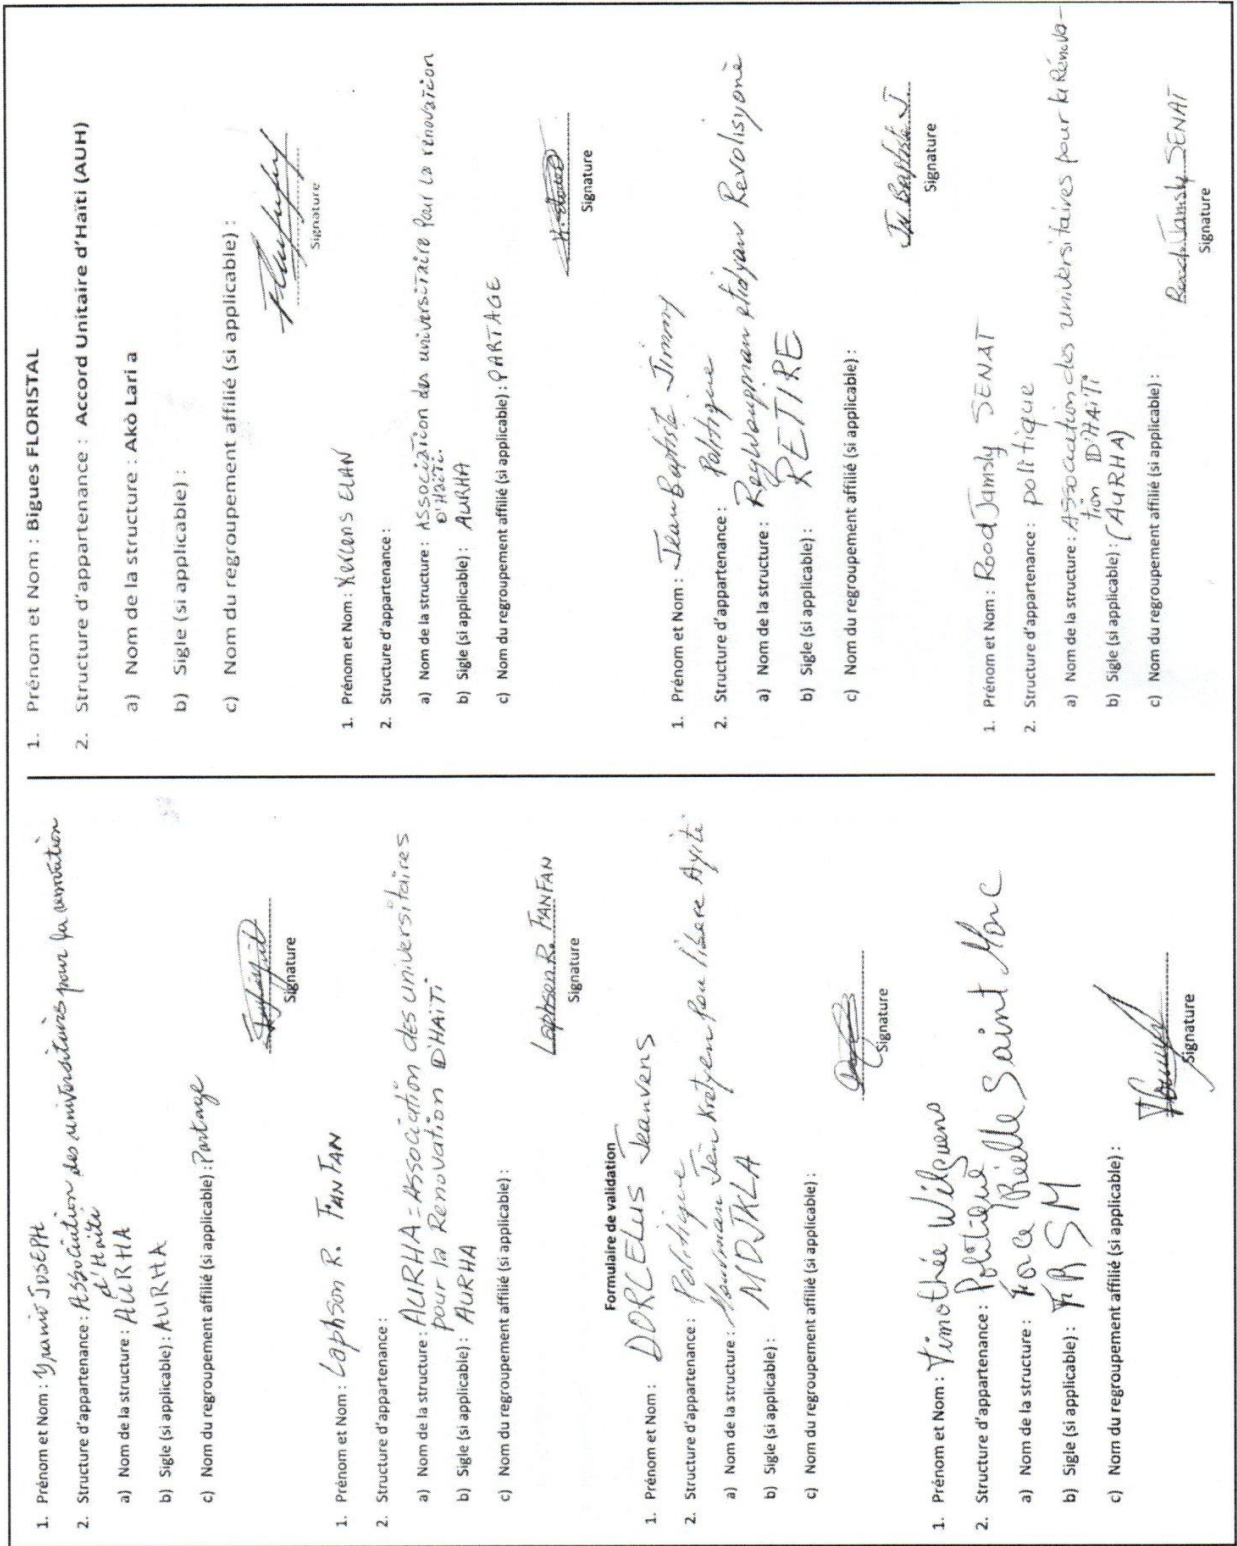 1. Prénom et Nom : Yranio JOSEPH
2. Structure d'appartenance : Association des universitaires pour la renovation
d'Haiti
a) Nom de la structure : AURHA
b) Sigle (si applicable) : AURHA
c) Nom du regroupement affilié (si applicable) : Partage
Signature
1. Prénom et Nom : Laphson R. FANFAN
2. Structure d'appartenance :
a) Nom de la structure : AURHA = Association des universitaires
pour la Renovation D'HAÏTI
b) Sigle (si applicable) : AURHA
c) Nom du regroupement affilié (si applicable) :
Laphson R. FANFAN
Signature
Formulaire de validation
1. Prénom et Nom : DORCELUS Jeanvens
2. Structure d'appartenance : Politique
a) Nom de la structure : Mouvman Jèn Kretyen Pou libere Ayiti
b) Sigle (si applicable) : MDJKLA
c) Nom du regroupement affilié (si applicable) :
Signature
1. Prénom et Nom : Timothée Wilguens
2. Structure d'appartenance : Politique
a) Nom de la structure : Force Réelle Saint Marc
b) Sigle (si applicable) : FRSM
c) Nom du regroupement affilié (si applicable) :
Signature
1. Prénom et Nom : Bigues FLORISTAL
2. Structure d'appartenance : Accord Unitaire d'Haïti (AUH)
a) Nom de la structure : Akò Lari a
b) Sigle (si applicable) :
c) Nom du regroupement affilié (si applicable) :
Signature
1. Prénom et Nom : ELAN
2. Structure d'appartenance :
a) Nom de la structure : Association des universitaire Pour la rénovation
D'Haïti.
b) Sigle (si applicable) : AURHA
c) Nom du regroupement affilié (si applicable) : PARTAGE
Signature
1. Prénom et Nom : Jean Baptiste Jimmy
2. Structure d'appartenance : Politique
a) Nom de la structure : Regwoupman etidyan Revolisyonè
b) Sigle (si applicable) : RETIRE
c) Nom du regroupement affilié (si applicable) :
Jn Baptiste J.
Signature
1. Prénom et Nom : Rood Jamsly SENAT
2. Structure d'appartenance : politique
a) Nom de la structure : Association des universitaires pour la Rénova-
tion D'HAïTi
b) Sigle (si applicable) : (AURHA)
c) Nom du regroupement affilié (si applicable) :
Rood Jamsly SENAT
Signature